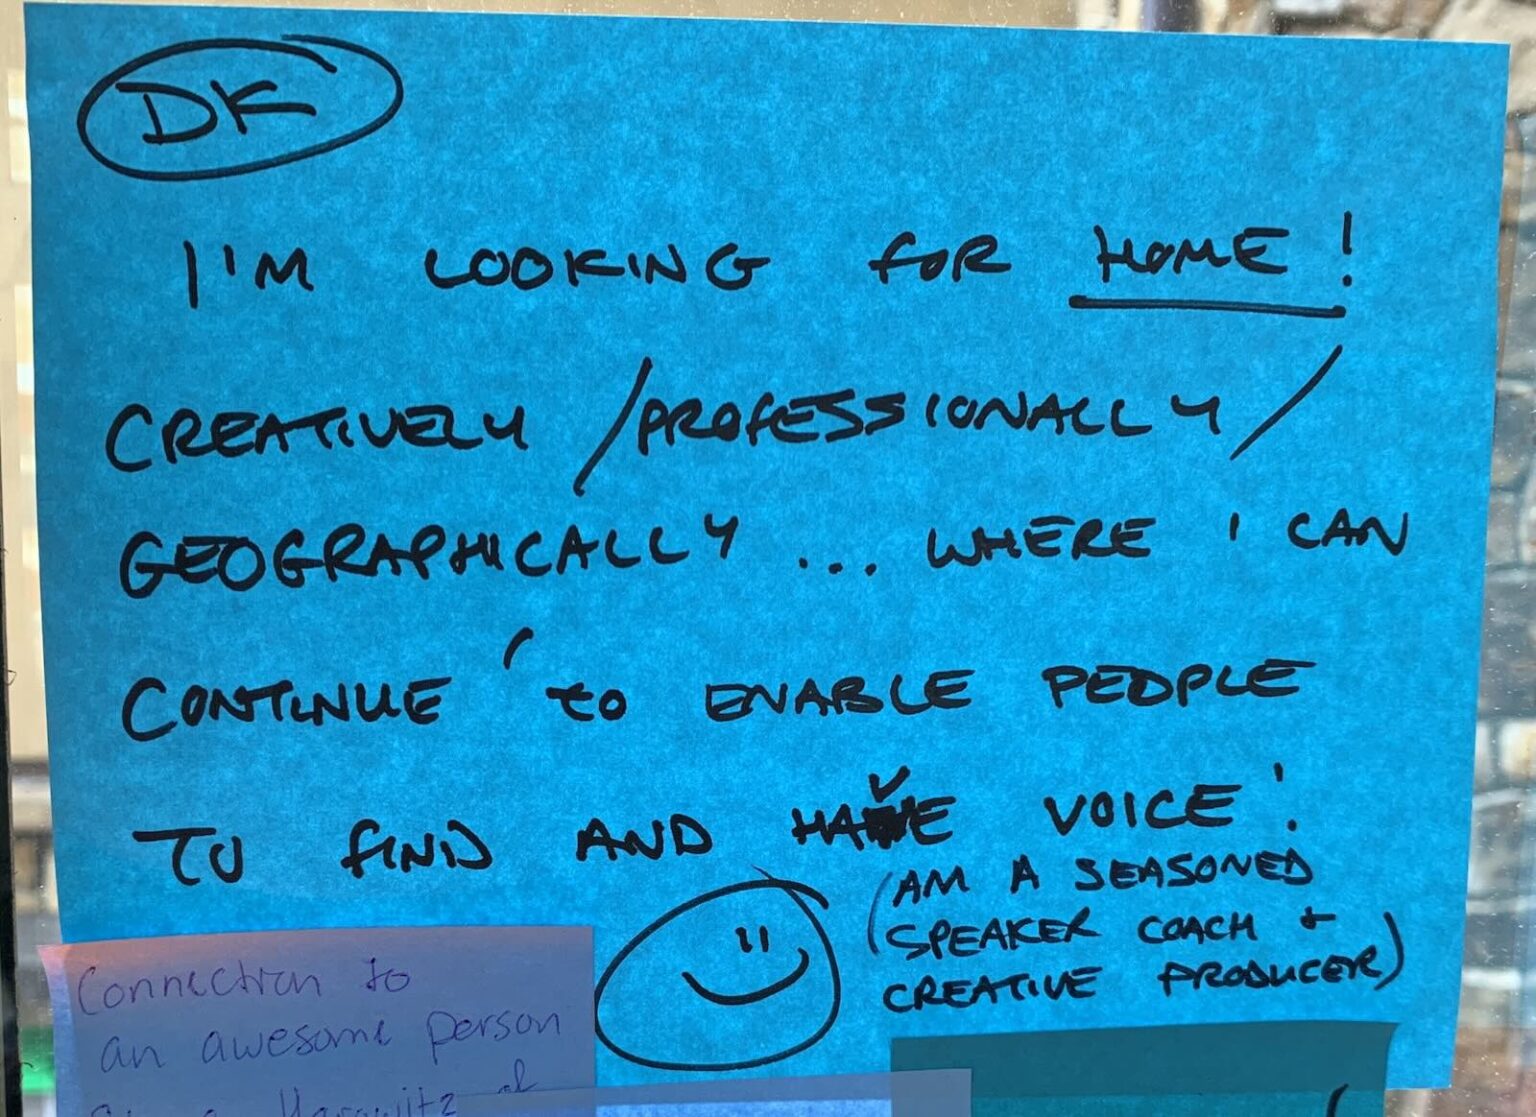 DK
I'M LOOKING FOR HOME!
CREATIVELY / PROFESSIONALLY /
GEOGRAPHICALLY ... WHERE I CAN
CONTINUE to ENABLE PEOPLE
TO FIND AND HAVE VOICE!
(AM A SEASONED
SPEAKER COACH +
CREATIVE PRODUCER)
Connection to
an awesome person
of